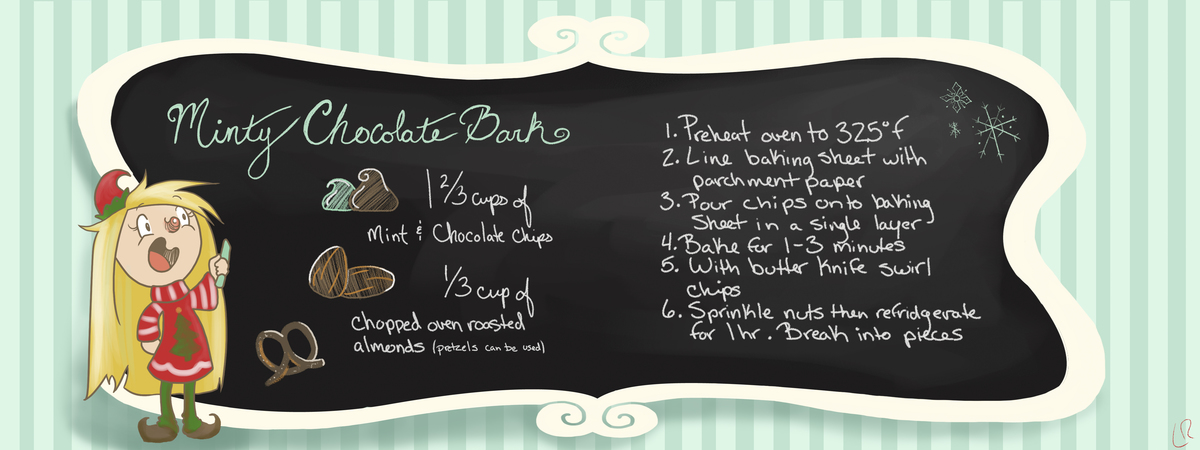 Minty Chocolate Bark
1 2/3 cups of
Mint & Chocolate Chips
1/3 cup of
chopped oven roasted
almonds (pretzels can be used)
1. Preheat oven to 325°f
2. Line baking sheet with
parchment paper
3. Pour chips onto baking
Sheet in a single layer
4. Bake for 1-3 minutes
5. With butter knife swirl
chips
6. Sprinkle nuts then refridgerate
for 1 hr. Break into pieces
LR